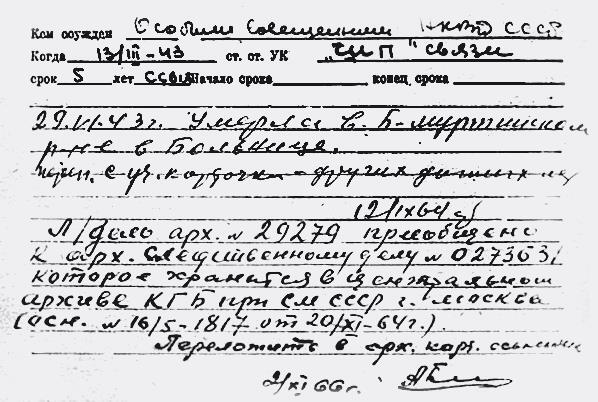 Кем осужден Особым Совещанием НКВД СССР
Когда 13/III-43 ст. ст. УК „ЦИП" связи
срок 5 лет ссыл Начало срока конец срока
29.VI.43г. Умерла в Б-Муртинском
р-не в Больнице.
с уч. карточки других данных нет
12/IX 64
Л/дело арх. № 29279 приобщено
к арх. следственному делу №
которое хранится в центральном
архиве КГБ при СМ СССР г. Москва
(осн. № 16/5-1817 от 20/XI-64г.).
Переложить в арх. карт. ссыльных
2/XI 66г.